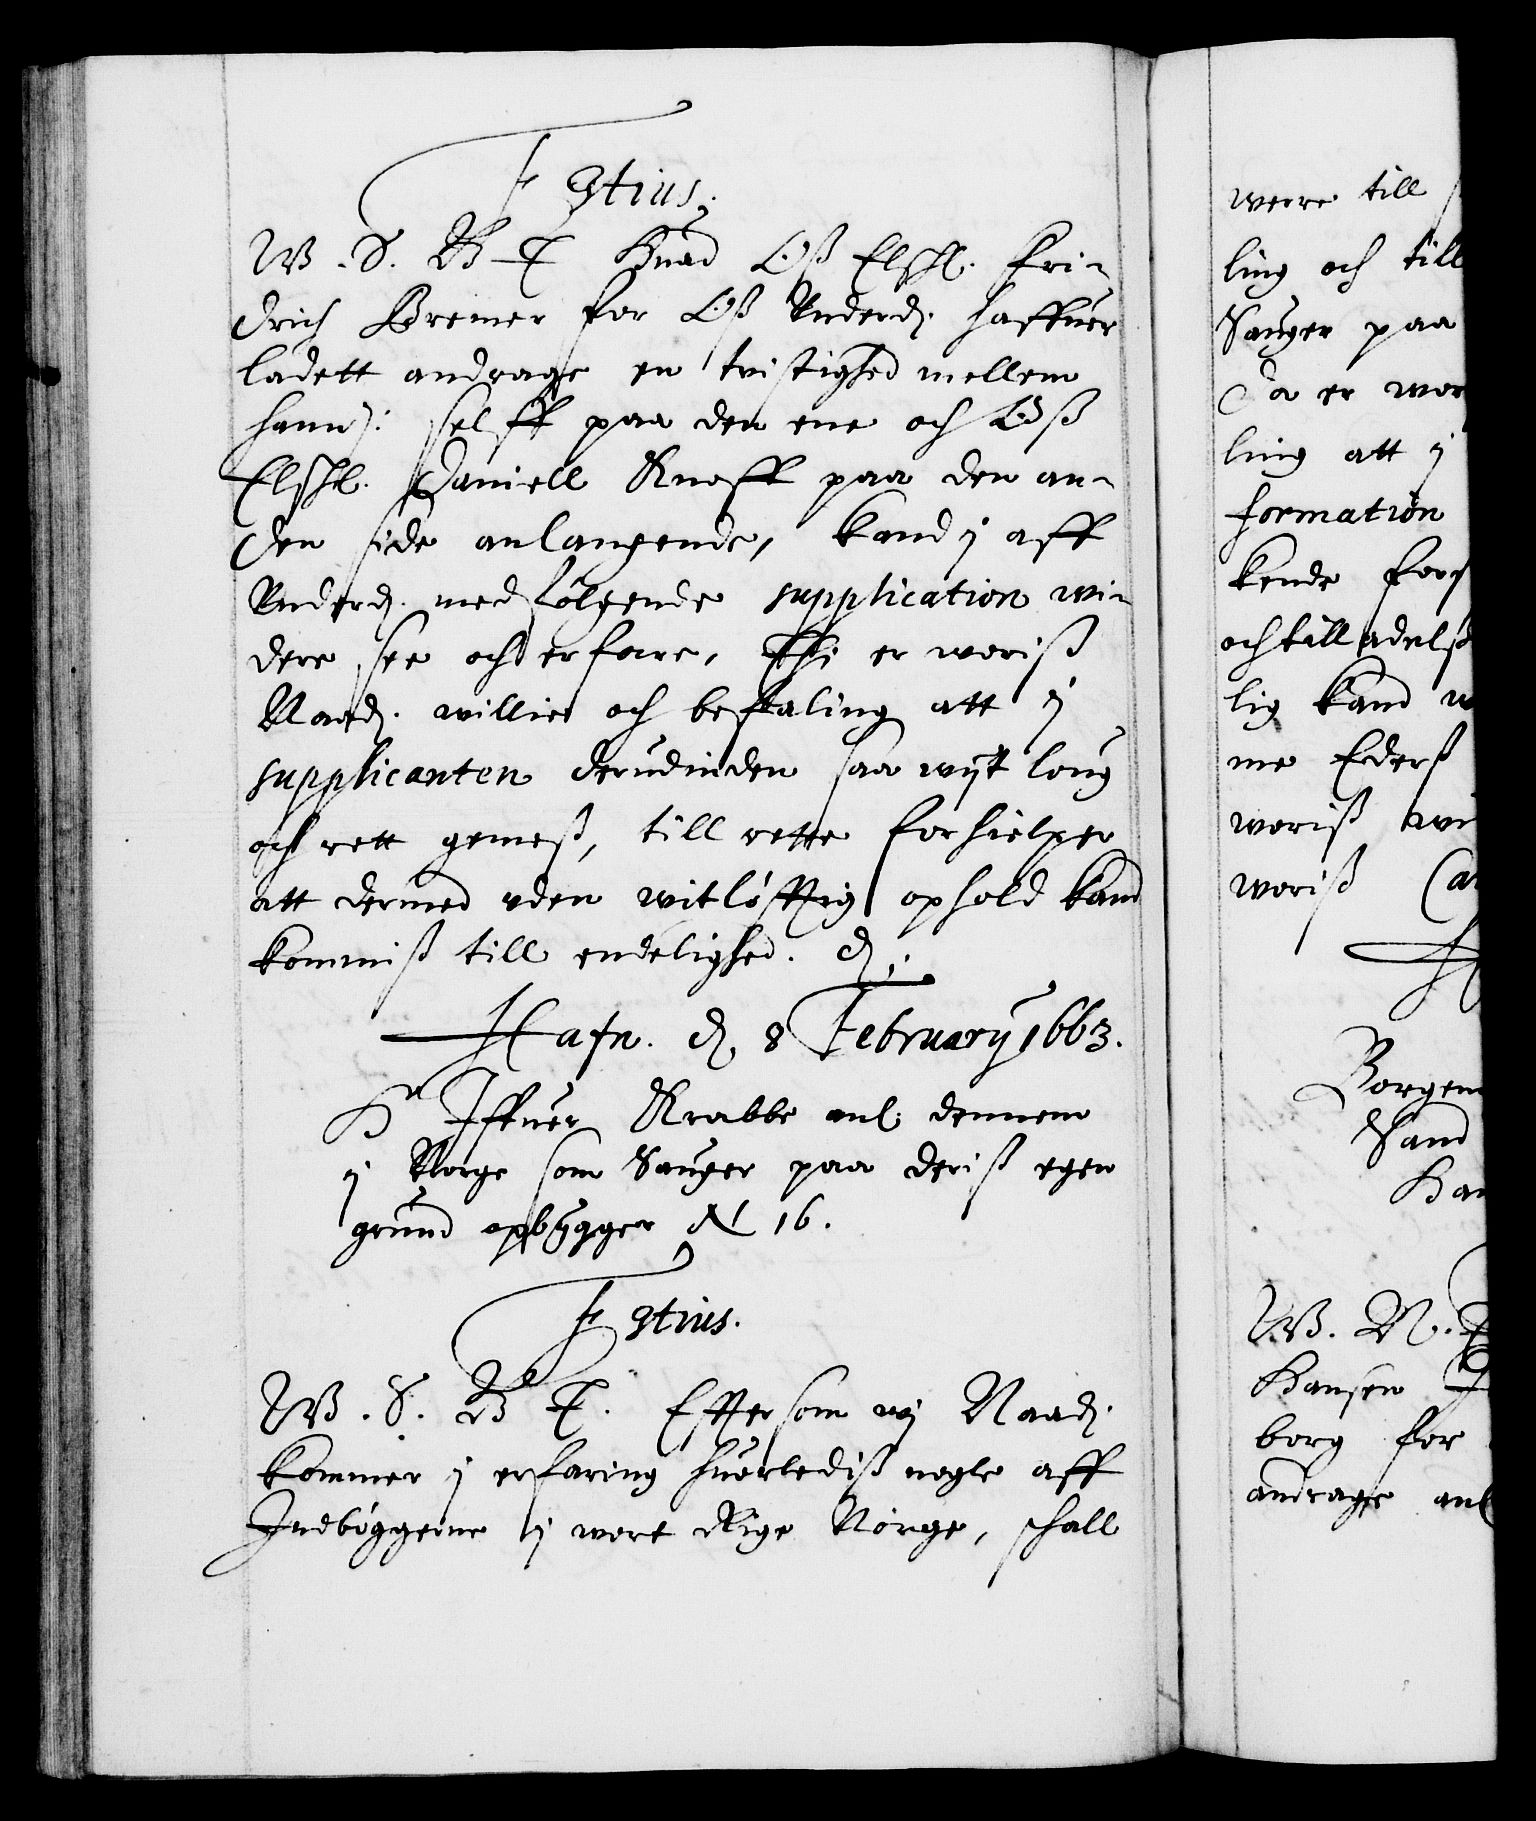 F 3tius.
W. S. G T Huad Oß Elskl. Fri-
drich Bremer for Oß Underd. haffuer
ladett andrage en tvistighed mellem
hannd: selff paa den ene och Oß
Elskl. Daniell Knoff paa den an-
den side anlangende, kand j aff
Underd. medfølgende supplication vi-
dere see och erfare, Thi er woriß
Naad. willie och befaling att j
supplicanten derudinden saa wijt loug
och rett gemeß, till rette forhielper
att dermed uden witløfftig ophold kand
kommiß till endelighed. d.
Hafn. d. 8 February 1663.
Hr Iffuer Krabbe anl. dennem
j Norge som Sauger paa deriß egen
grund opbygger N 16.
F 3tius.
W. S. G T. Efftersom wj Naad.
kommer j erfaring huorlediß nogle aff
Indbyggerne j wort Rige Norge, schall
werre till
ling och till
Sauger paa
Da er wor
ling att j
formation
kende for
och till adelß
lig kand
me Ederß
woriß wi
woriß Ca
H
Borgem
Sand
Han
W. N.
Hansen
borg for
andrage anl